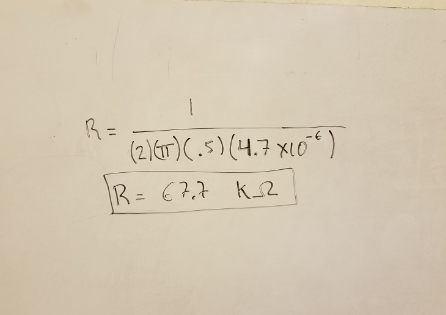 R = 1 / (2)(π)(.5)(4.7 x10^-6)
R = 67.7 KΩ